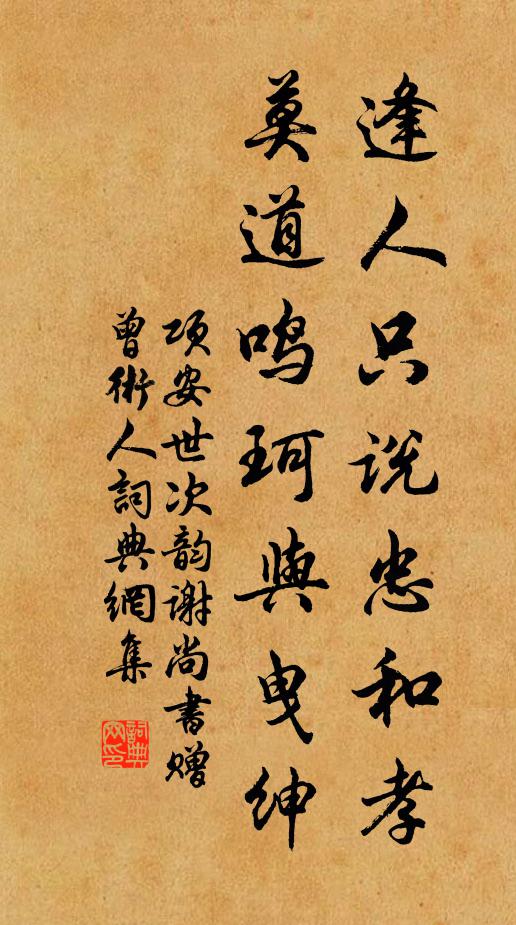 逢人只说忠和孝
莫道鸣珂与曳绅
项安世次韵谢尚书赠
曾術人詞典網集
詞典网印